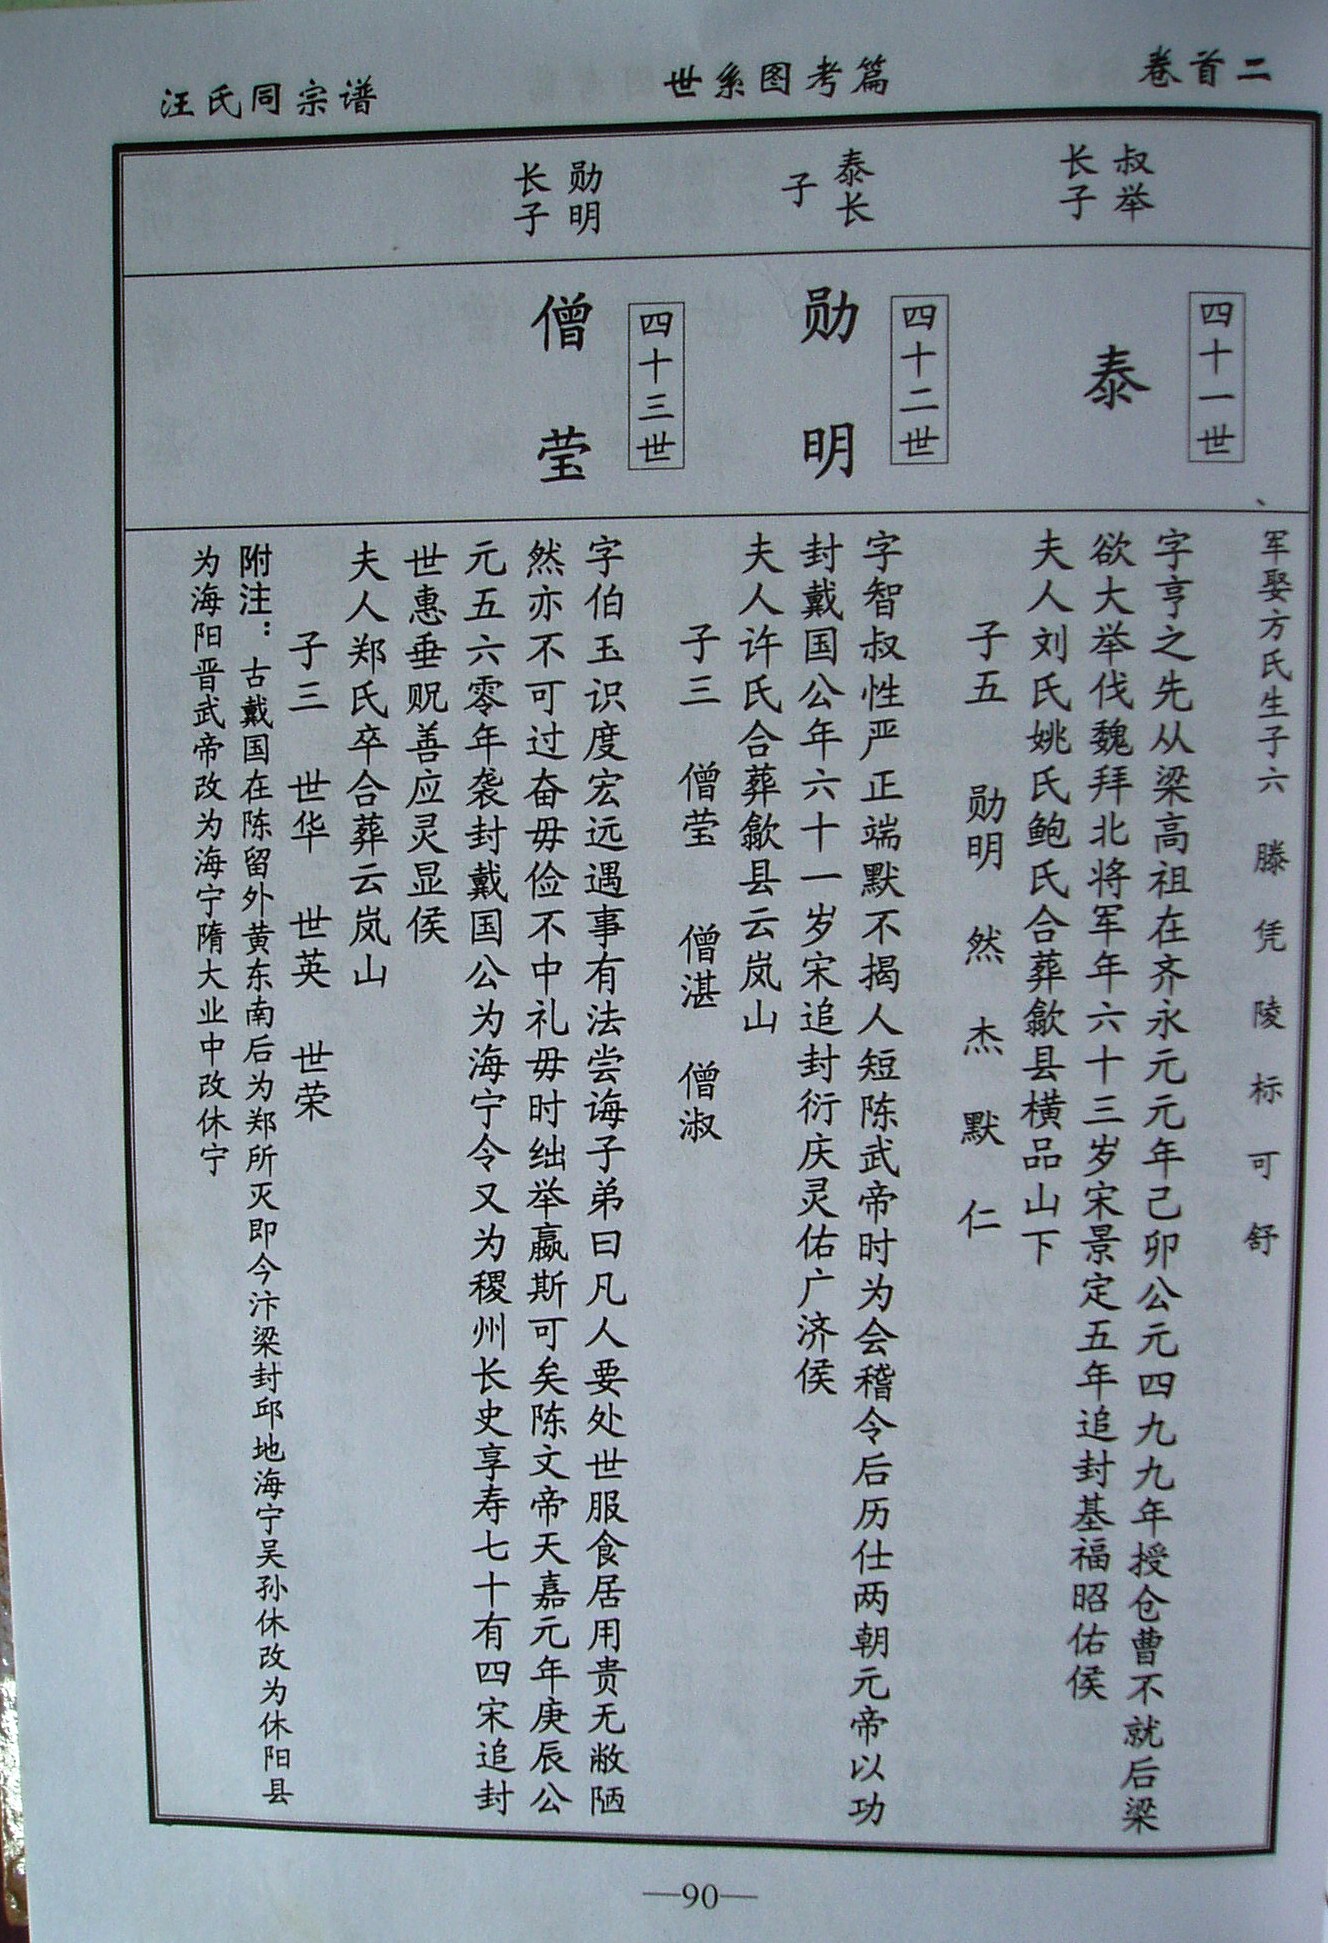 卷首二
世系图考篇
汪氏同宗谱
军娶方氏生子六 滕 凭 陵 标 可 舒
叔举
长子
四十一世
泰
字亨之先从梁高祖在齐永元元年己卯公元四九九年授仓曹不就后梁
欲大举伐魏拜北将军年六十三岁宋景定五年追封基福昭佑侯
夫人刘氏姚氏鲍氏合葬歙县横品山下
子五 勋明 然 杰 默 仁
泰长
子
四十二世
勋明
字智叔性严正端默不揭人短陈武帝时为会稽令后历仕两朝元帝以功
封戴国公年六十一岁宋追封衍庆灵佑广济侯
夫人许氏合葬歙县云岚山
子三 僧莹 僧湛 僧淑
勋明
长子
四十三世
僧莹
字伯玉识度宏远遇事有法尝诲子弟曰凡人要处世服食居用贵无敝陋
然亦不可过奋毋俭不中礼毋时绌举赢斯可矣陈文帝天嘉元年庚辰公
元五六零年袭封戴国公为海宁令又为稷州长史享寿七十有四宋追封
世惠垂贶善应灵显侯
夫人郑氏卒合葬云岚山
子三 世华 世英 世荣
附注：古戴国在陈留外黄东南后为郑所灭即今汴梁封邱地海宁吴孙休改为休阳县
为海阳晋武帝改为海宁隋大业中改休宁
—90—